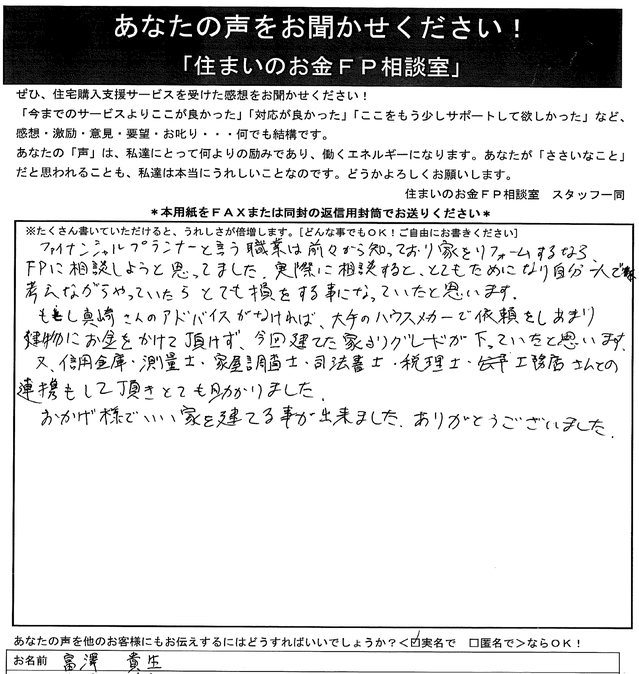 あなたの声をお聞かせください！
「住まいのお金ＦＰ相談室」
ぜひ、住宅購入支援サービスを受けた感想をお聞かせください！
「今までのサービスよりここが良かった」「対応が良かった」「ここをもう少しサポートして欲しかった」など、
感想・激励・意見・要望・お叱り・・・何でも結構です。
あなたの「声」は、私達にとって何よりの励みであり、働くエネルギーになります。あなたが「ささいなこと」
だと思われることも、私達は本当にうれしいことなのです。どうかよろしくお願いします。
住まいのお金ＦＰ相談室　スタッフ一同
＊本用紙をＦＡＸまたは同封の返信用封筒でお送りください＊
※たくさん書いていただけると、うれしさが倍増します。［どんな事でもＯＫ！ご自由にお書きください］
ファイナンシャルプランナーと言う職業は前々から知っており家をリフォームするなら、
FPに相談しようと思ってました。実際に相談すると、とてもためになり自分一人で
考えながらやっていたらとても損をする事になっていたと思います。
もし真崎さんのアドバイスがなければ、大手のハウスメカーで依頼をしあまり
建物にお金をかけて頂けず、今回建てた家よりグレードが下っていたと思います。
又、信用金庫・測量士・家屋調査士・司法書士・税理士・工務店さんとの
連携もして頂きとても助かりました。
おかげ様でいい家を建てる事が出来ました。ありがとうございました。
あなたの声を他のお客様にもお伝えするにはどうすればいいでしょうか？＜☑実名で　□匿名で＞ならＯＫ！
お名前　富澤　貴生